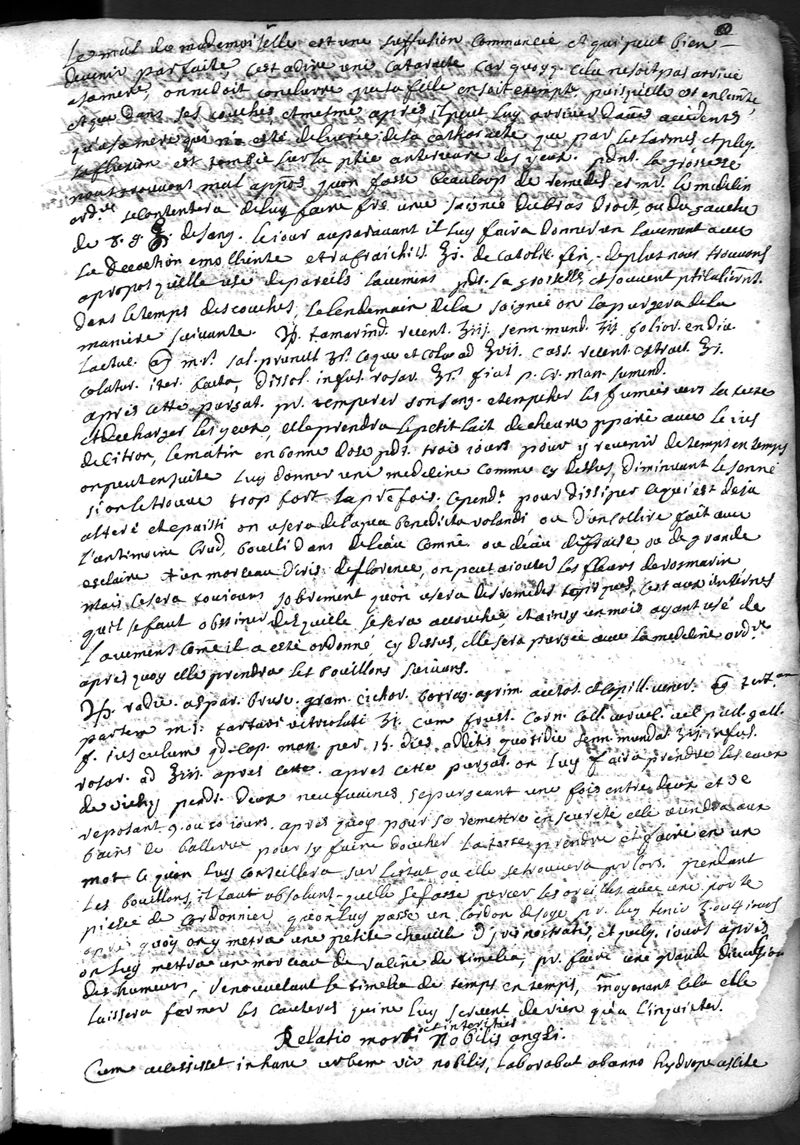 Le mal de mademoiselle est une suffusion commancée et qui peut bien
devenir parfaite, c'est adire une cataracte car quoyq cela ne soit pas arrivé
asamere, on ne doit conclurre que sa fille en soit exempte puis quelle est enceinte,
et que dans ses couches et mesme apres il peut luy arriver d'accidents
qu'a sa mere qui n'a esté delivrée de la catharacte que par les larmes et
la fluxion est tombée sur la ptie anterieure des yeux. pdnt. la grossesse
nous trouvons mal appos quon fasse beaucoup de remedes et mr. le medecin
ordre se contentera de luy faire fre une saignée du bras droit, ou du gauche
de 8. 9. ℥. de sang. le jour auparavant il luy faira donner un lavement avec
la decoction emolliente et rafraichiss. ℥i. de catolic. fin, de plus nous trouvons
apropos qu'elle use de pareils lavemens pdt. la grossesse, et souvent
dans le temps des couches, le lendemain de la saignée on la purgera de la
maniere suivante. ℞. tamarind. recent. ʒiij. senn. mund. ʒij folior. endiv.
lactuc. a m.i. sal. prunell. coque et cola ad ℥vij. cass. recent extract. ℥i.
colatur. iter. facta, dissol. infus. rosar. ℥i fiat p. cr. man. sumend.
apres cette purgat. pr. temperer son sang. et empecher les fumées vers la teste
et decharger les yeux, elle prendra le petit lait de chevre pparé avec le jus
de citron, le matin en bonne dose pdt. trois jours pour y revenir de temps en temps
on peut en suite luy donner une medecine comme cy dessus, diminuant le senné
si on le trouve trop fort la pre fois. cepend.t pour dissiper ce qui est deja
alteré et epaissi on usera de l'aqua benedicta rolandi ou d'un collire fait avec
l'antimoine crud, bouilli dans de l'eau comne. ou deau defraise, ou de grande
esclaire et un morceau d'iris de florence, on peut ajouter les fleurs de rosmarin
mais ce sera toujours sobrement quon usera des remedes topiques, c'est aux internes
qu'il se faut obstiner des quelle se sera accouchée et ainsy un mois ayant usé de
lavement comme il a esté ordonné cy dessus, elle sera purgée avec la medecine ordre
apres quoy elle prendra les bouillons suivans.
℞. radic. aspar. brusc. gram. cichor. borrag. agrim. acetos. et capill. vener.
partem m.j. tartari vitriolati cum frust. carn. coll. vervec. vel pull. gall.
f. jusculum qd. cap. man. per 15. dies additis quotidie senn. mundat ʒij. infus.
rosar. ad ʒiij. apres cette. apres cette purgat. on luy faira prendre les eaux
de vichy pendt. deux neufvaines se purgeant une fois entre deux et se
reposant 9. ou 10 jours. apres quoy pour se remettre en seureté elle viendra aux
bains de balleruc pour sy faire doucher la teste prendre et faire en un
mot ce quon luy conseillera sur l'estat ou elle se trouvera pr lors. pendant
les bouillons, il faut absolunt. quelle se fasse percer les oreilles avec une porte
piesse de cordonnier quon luy passe un cordon de soye pr. luy tenir 3 ou 4 jours
apres quoy on y metra une petite cheville d'iris nostratis, et quelq. jours apres
on luy mettra un morceau de racine de timelea, pr. faire une grande
des humeurs, renouvelant le timelea de temps en temps, moyenant cela elle
laissera fermer les cauteres qui ne luy servent de rien qu'a l'inquieter.
Relatio morbi et interitus nobilis angli.
Cum accessisset in hanc urbem vir nobilis, laborabat ab anno hydrope ascite